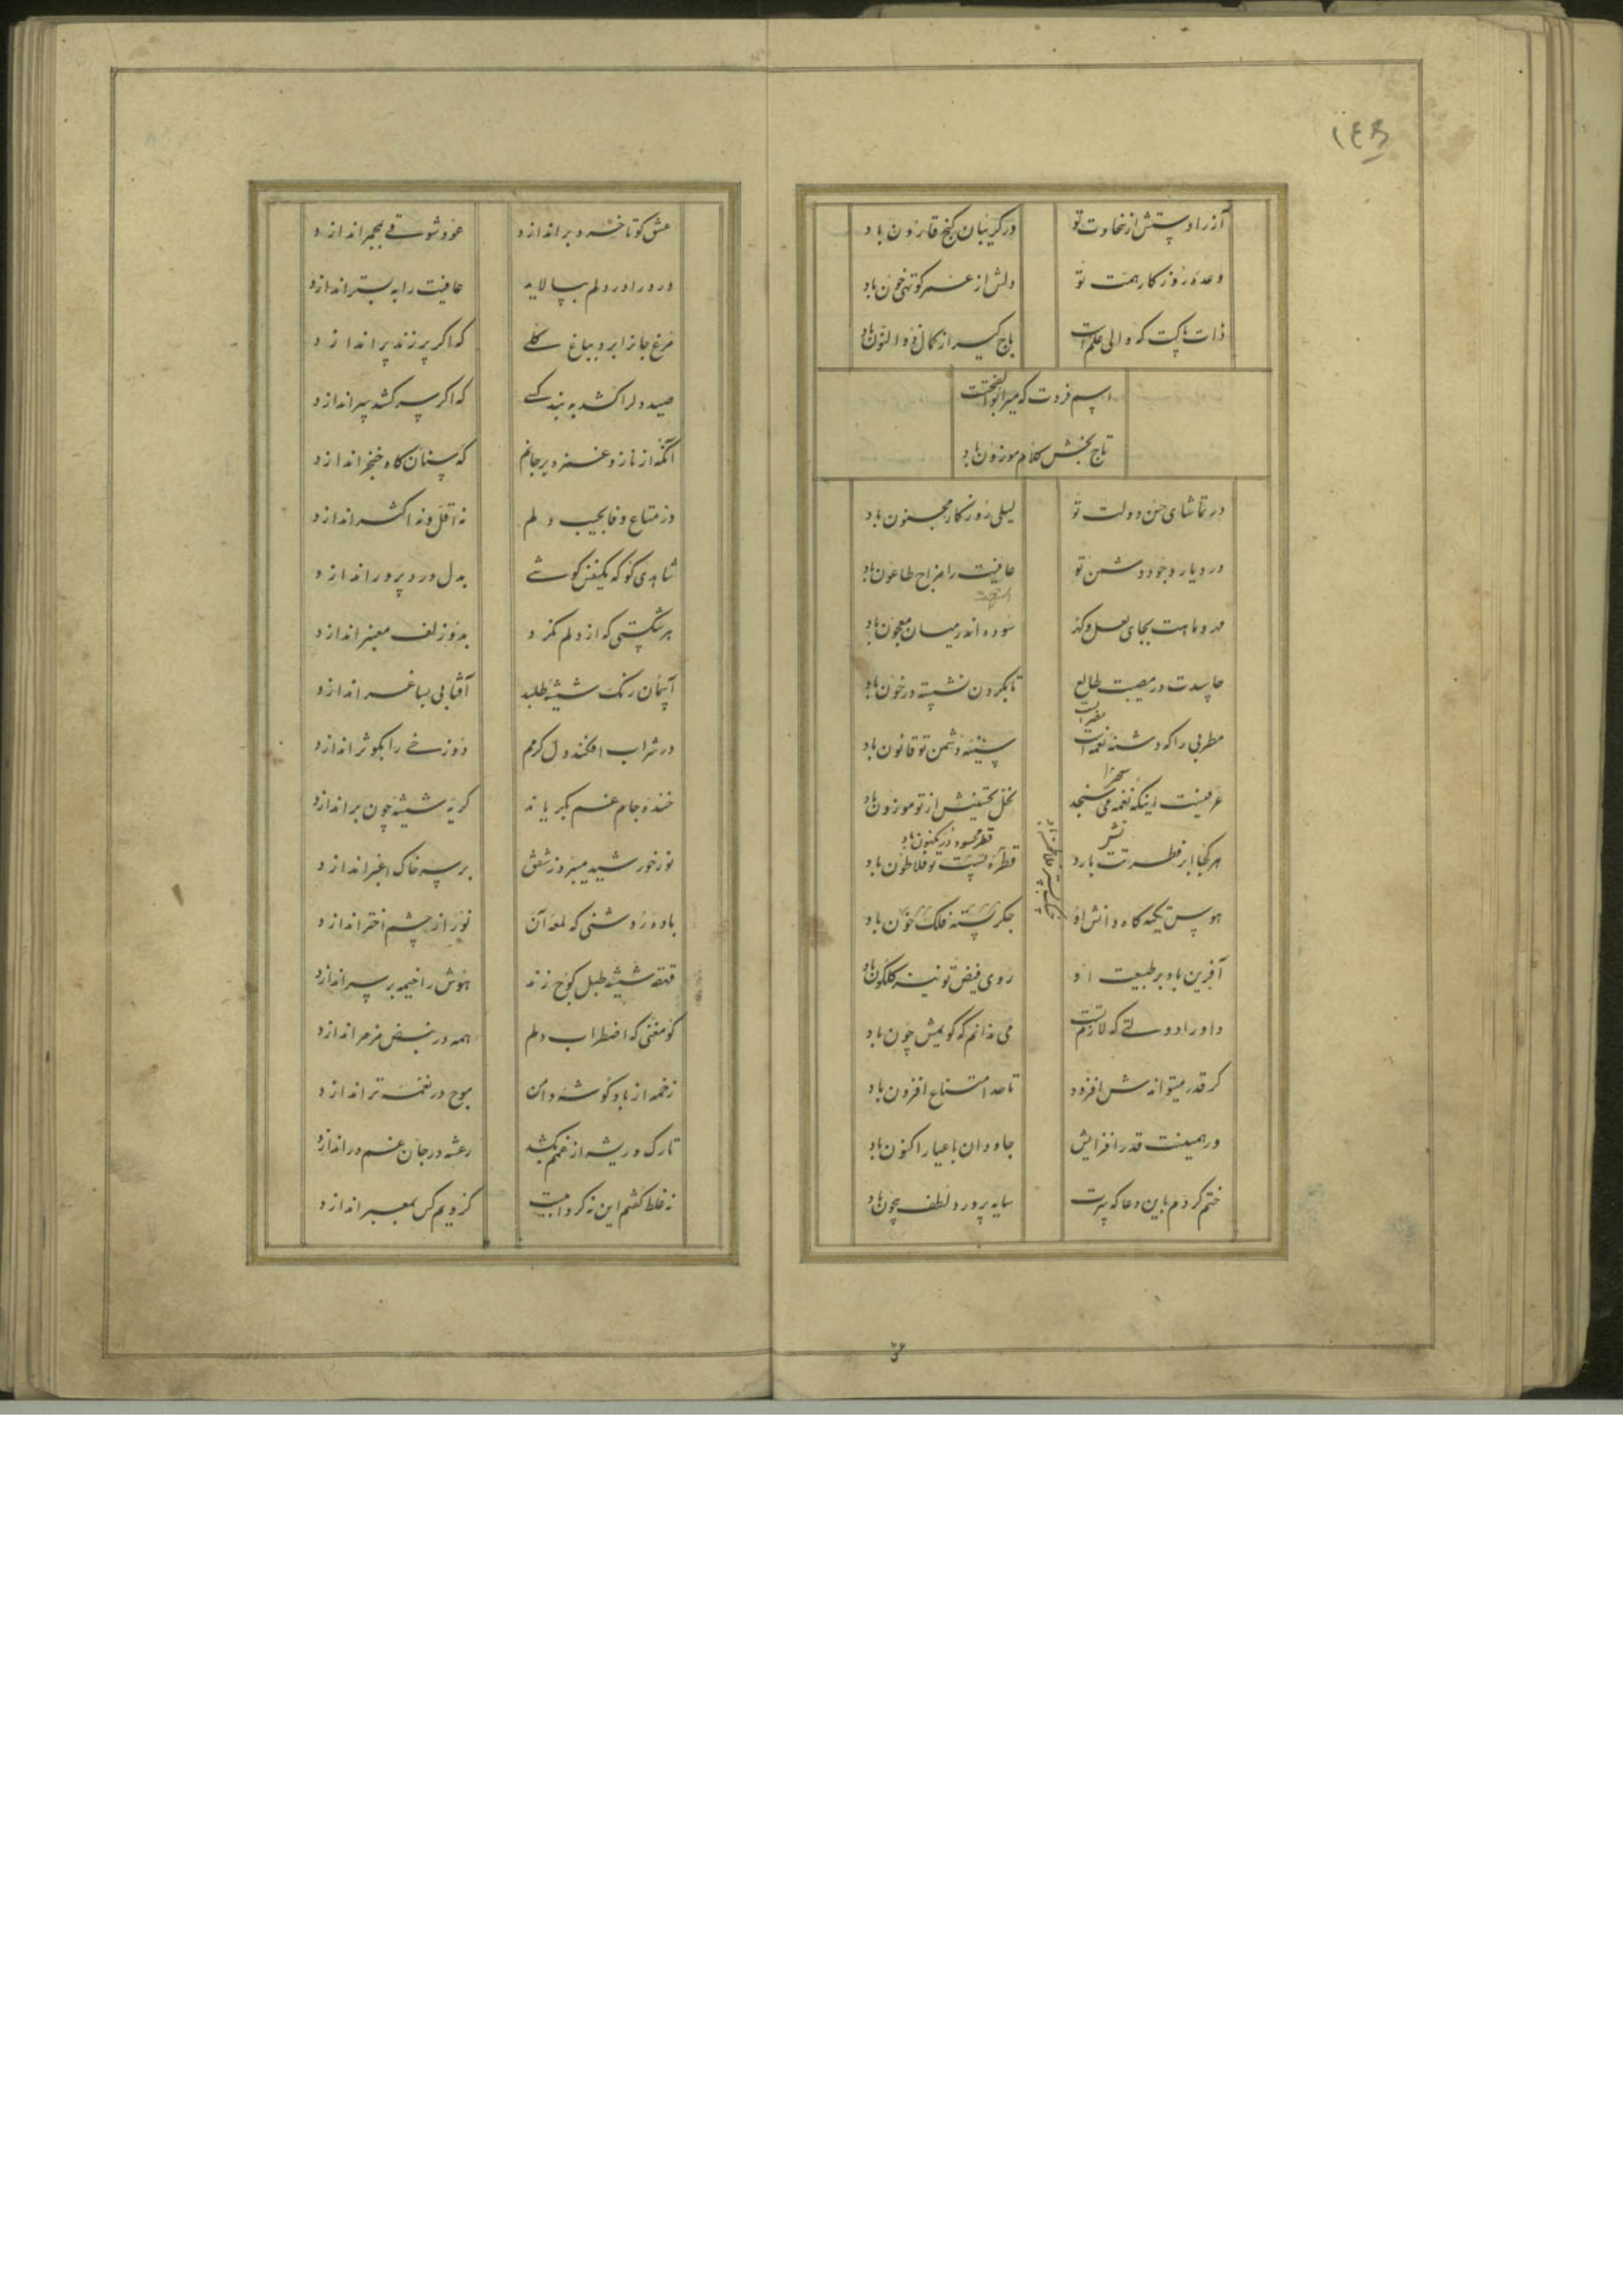 ۱۴۹
آز را دستش از سخاوت تو در گریبان گنج قارون باد
وعده روزگار همت تو دلش از عمر کوتهی خون باد
ذات پاکت که والی علم است باج گیر از کمال ذوالنون باد
اسم فردت که میر ابوالفتحست
تاج بخش کلام موزون باد
در تماشای حسن دولت تو لیلی روزگار مجنون باد
در دیار وجود دشمن تو عافیت را مزاج طاعون باد
بجای لعل و گهر سوده اندر میان معجون باد
حاسدت در مصیبت طالع تا بگردن نشسته در خون باد
مطربی را که دشنه نغمه است سینه دشمن تو قانون باد
عرفیست اینکه نغمه می سنجد نخل تحسینش از تو موزون باد
هر کجا ابر فطرتت بارد قطره پست تو فلاطون باد
هوس تکیه گاه دانش او جگر فلک خون باد
آفرین باد بر طبیعت او روی فیض تو نیز گلگون باد
داورا دولتی که لازم تست می ندانم که گویمش چون باد
گر قدر میتواندش افزود تا حد امتناع افزون باد
ور همینست قدر افزایش جاودان با عیار اکنون باد
ختم کردم باین دعا که سایه پرور لطف بیچون باد
عشق کو تا خرد براندازد عود شوقی بمجمر اندازد
درد را در دلم بپالاید عافیت را به بستر اندازد
مرغ جانرا برد بباغ گلی که اگر پر زند پر اندازد
صید دلرا کشد به بند کسی که اگر سر کشد سر اندازد
آنکه از ناز و غمزه بر جانم که سنان گاه خنجر اندازد
در متاع وفا بجیب دلم نه اقل و نه اکثر اندازد
شاهدی کو که یکنفس گوشی بدل درد پرور اندازد
هر شکستی که از دلم گذرد بدو زلف معنبر اندازد
آسمان رنگ شیشه طلبد آفتابی بساغر اندازد
در شراب افکند دل گرمم دوزخی را بکوثر اندازد
خنده جام غم بگریاند گریه شیشه چون براندازد
نور خورشید میبرد ز شفق بر سر خاک اغبر اندازد
باده روشنی که لمعه آن نور از چشم اختر اندازد
قهقه شیشه طبل کوچ زند هوش را خیمه بر سر اندازد
کو مغنی که اضطراب دلم همه در نبض مزمر اندازد
زخمه از باد گوشه دامن موج در نغمه تر اندازد
تا رگ و ریشه از غمم بکشد رعشه در جان غم در اندازد
نه غلط گفتم این نه کرد منست